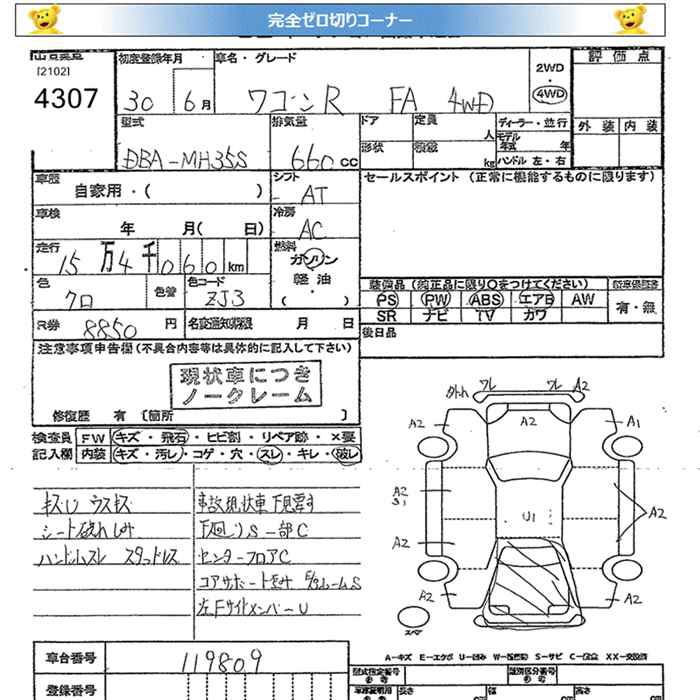 完全ゼロ切りコーナー
[2102]
4307
初度登録年月
30 6月
車名・グレード
ワゴンR FA 4WD
2WD
・
4WD
評価点
外装 内装
型式
DBA-MH35S
排気量
660 cc
ドア
定員
人
ディーラー・並行
モデル
年式 年
形状
積載
kg
ハンドル 左・右
車歴
自家用・( )
シフト
AT
セールスポイント (正常に機能するものに限ります)
車検
年 月( 日)
冷房
AC
走行
15万4千060km
燃料
ガソリン
軽油
( )
色
クロ
色替
色コード
ZJ3
装備品 (純正品に限り○をつけてください)
PS PW ABS エアB AW
SR ナビ TV カワ
有・無
R券 8850 円
名変通知期限 月 日
後日品
注意事項申告欄(不具合内容等は具体的に記入して下さい)
現状車につき
ノークレーム
修復歴 有 [箇所 ]
検査員
記入欄
FW キズ・飛石・ヒビ割・リペア跡・×要
内装 キズ・汚レ・コゲ・穴・スレ・キレ・破レ
シート破れ
ハンドルスレ スタッドレス
事故現状車 下見要す
下回りS一部C
センターフロアC
コアサポート
左Fサイドメンバー U
ワレ ワレ A2
A2 A2 A1
A2
A2
U1
A2
A2
A2
スペア
A-キズ E-エクボ U-凹み W-波 S-サビ C-腐食 XX-交換済
車台番号
119809
登録番号
型式指定番号
参考
類別区分番号
参考
長さ 幅 高さ